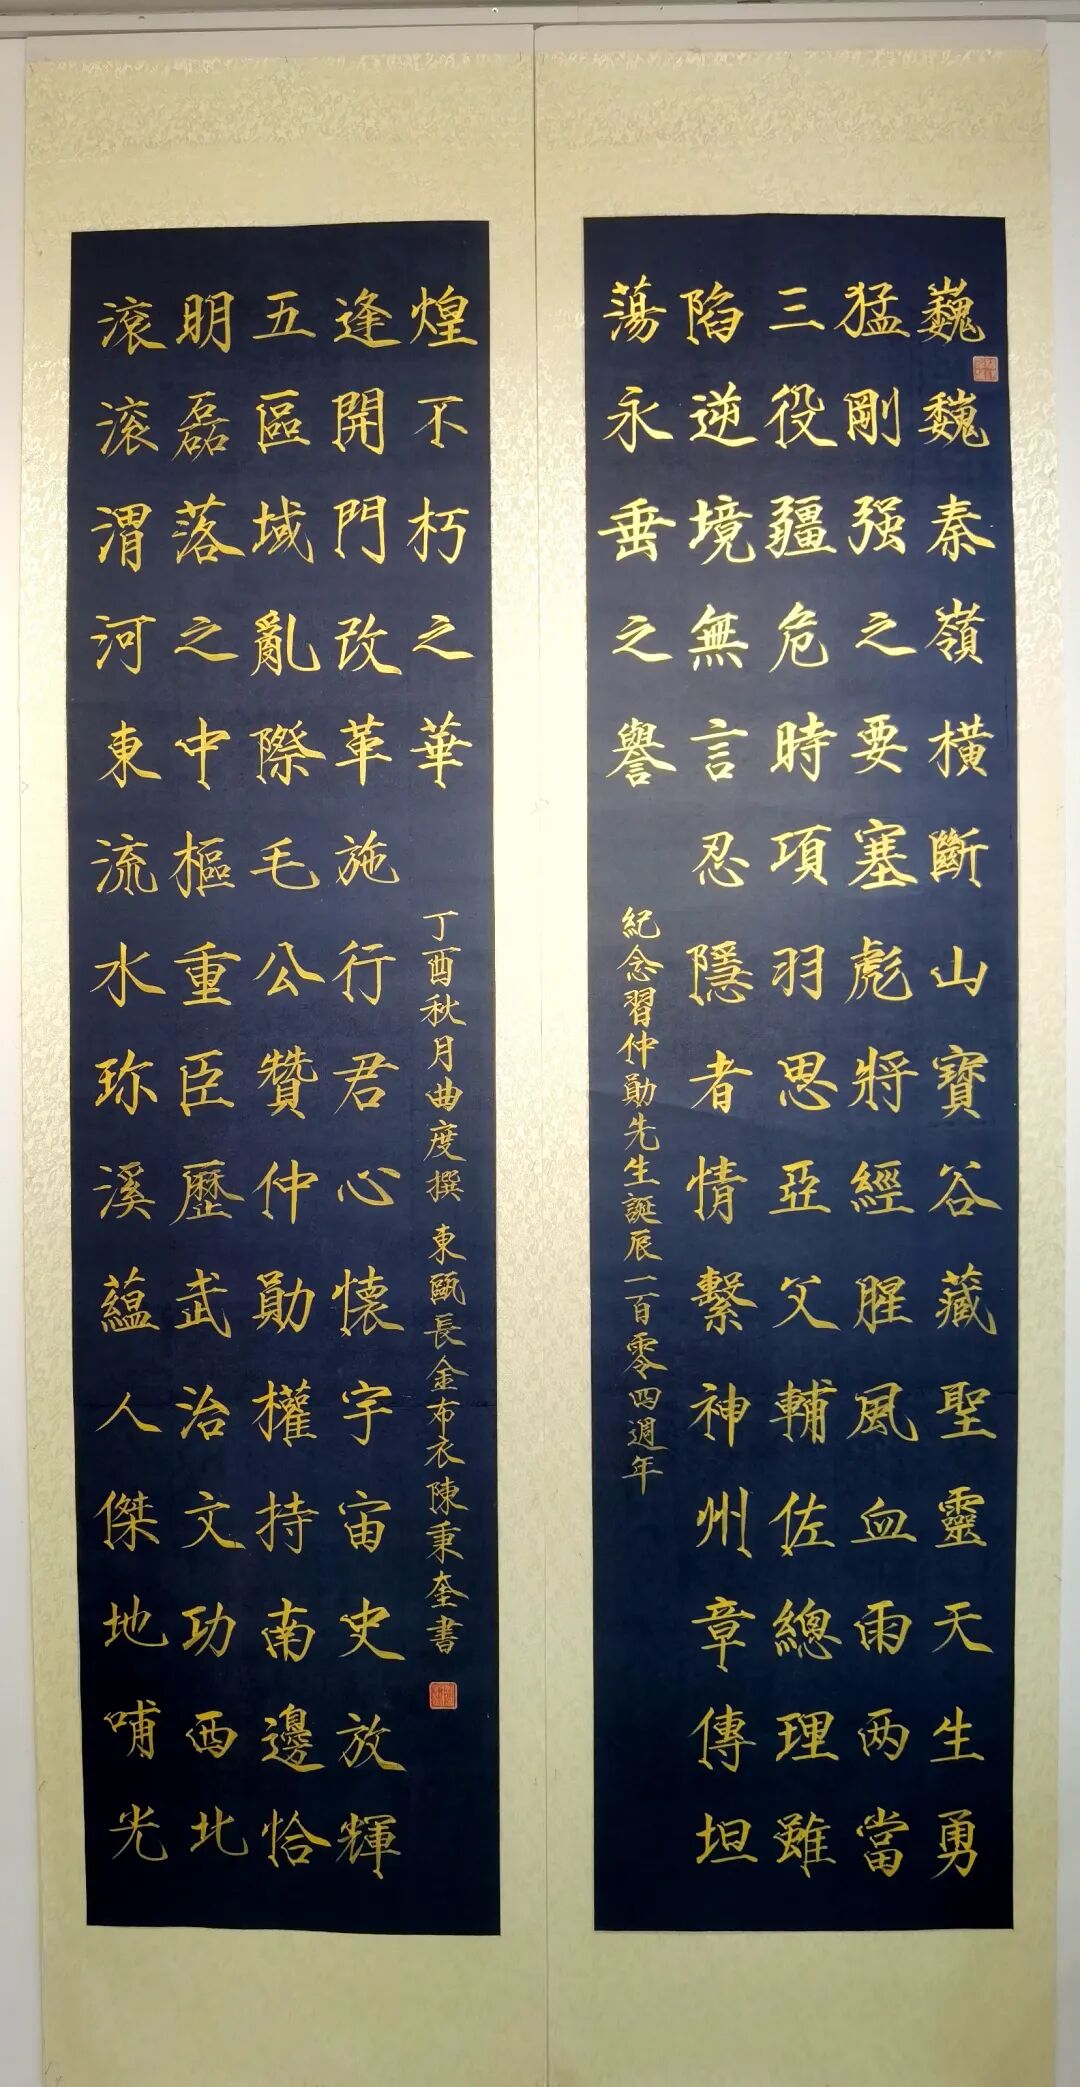 巍巍秦嶺橫斷山寶谷藏聖靈天生勇
猛剛强之要塞彪將經腥風血雨两當
三役疆危時項羽思亞父輔佐總理雖
陷逆境無言忍隱者情繫神州章傳坦
蕩永垂之譽
紀念習仲勛先生誕辰一百零四週年
滾滚渭河東流水珎溪蘊人傑地哺光
明磊落之中樞重臣歷武治文功西北
五區域亂際毛公贊仲勛權持南邊恰
逢開門改革施行君心懷宇宙史放輝
煌不朽之華
丁酉秋月曲度撰 東甌長金布衣陳秉奎書